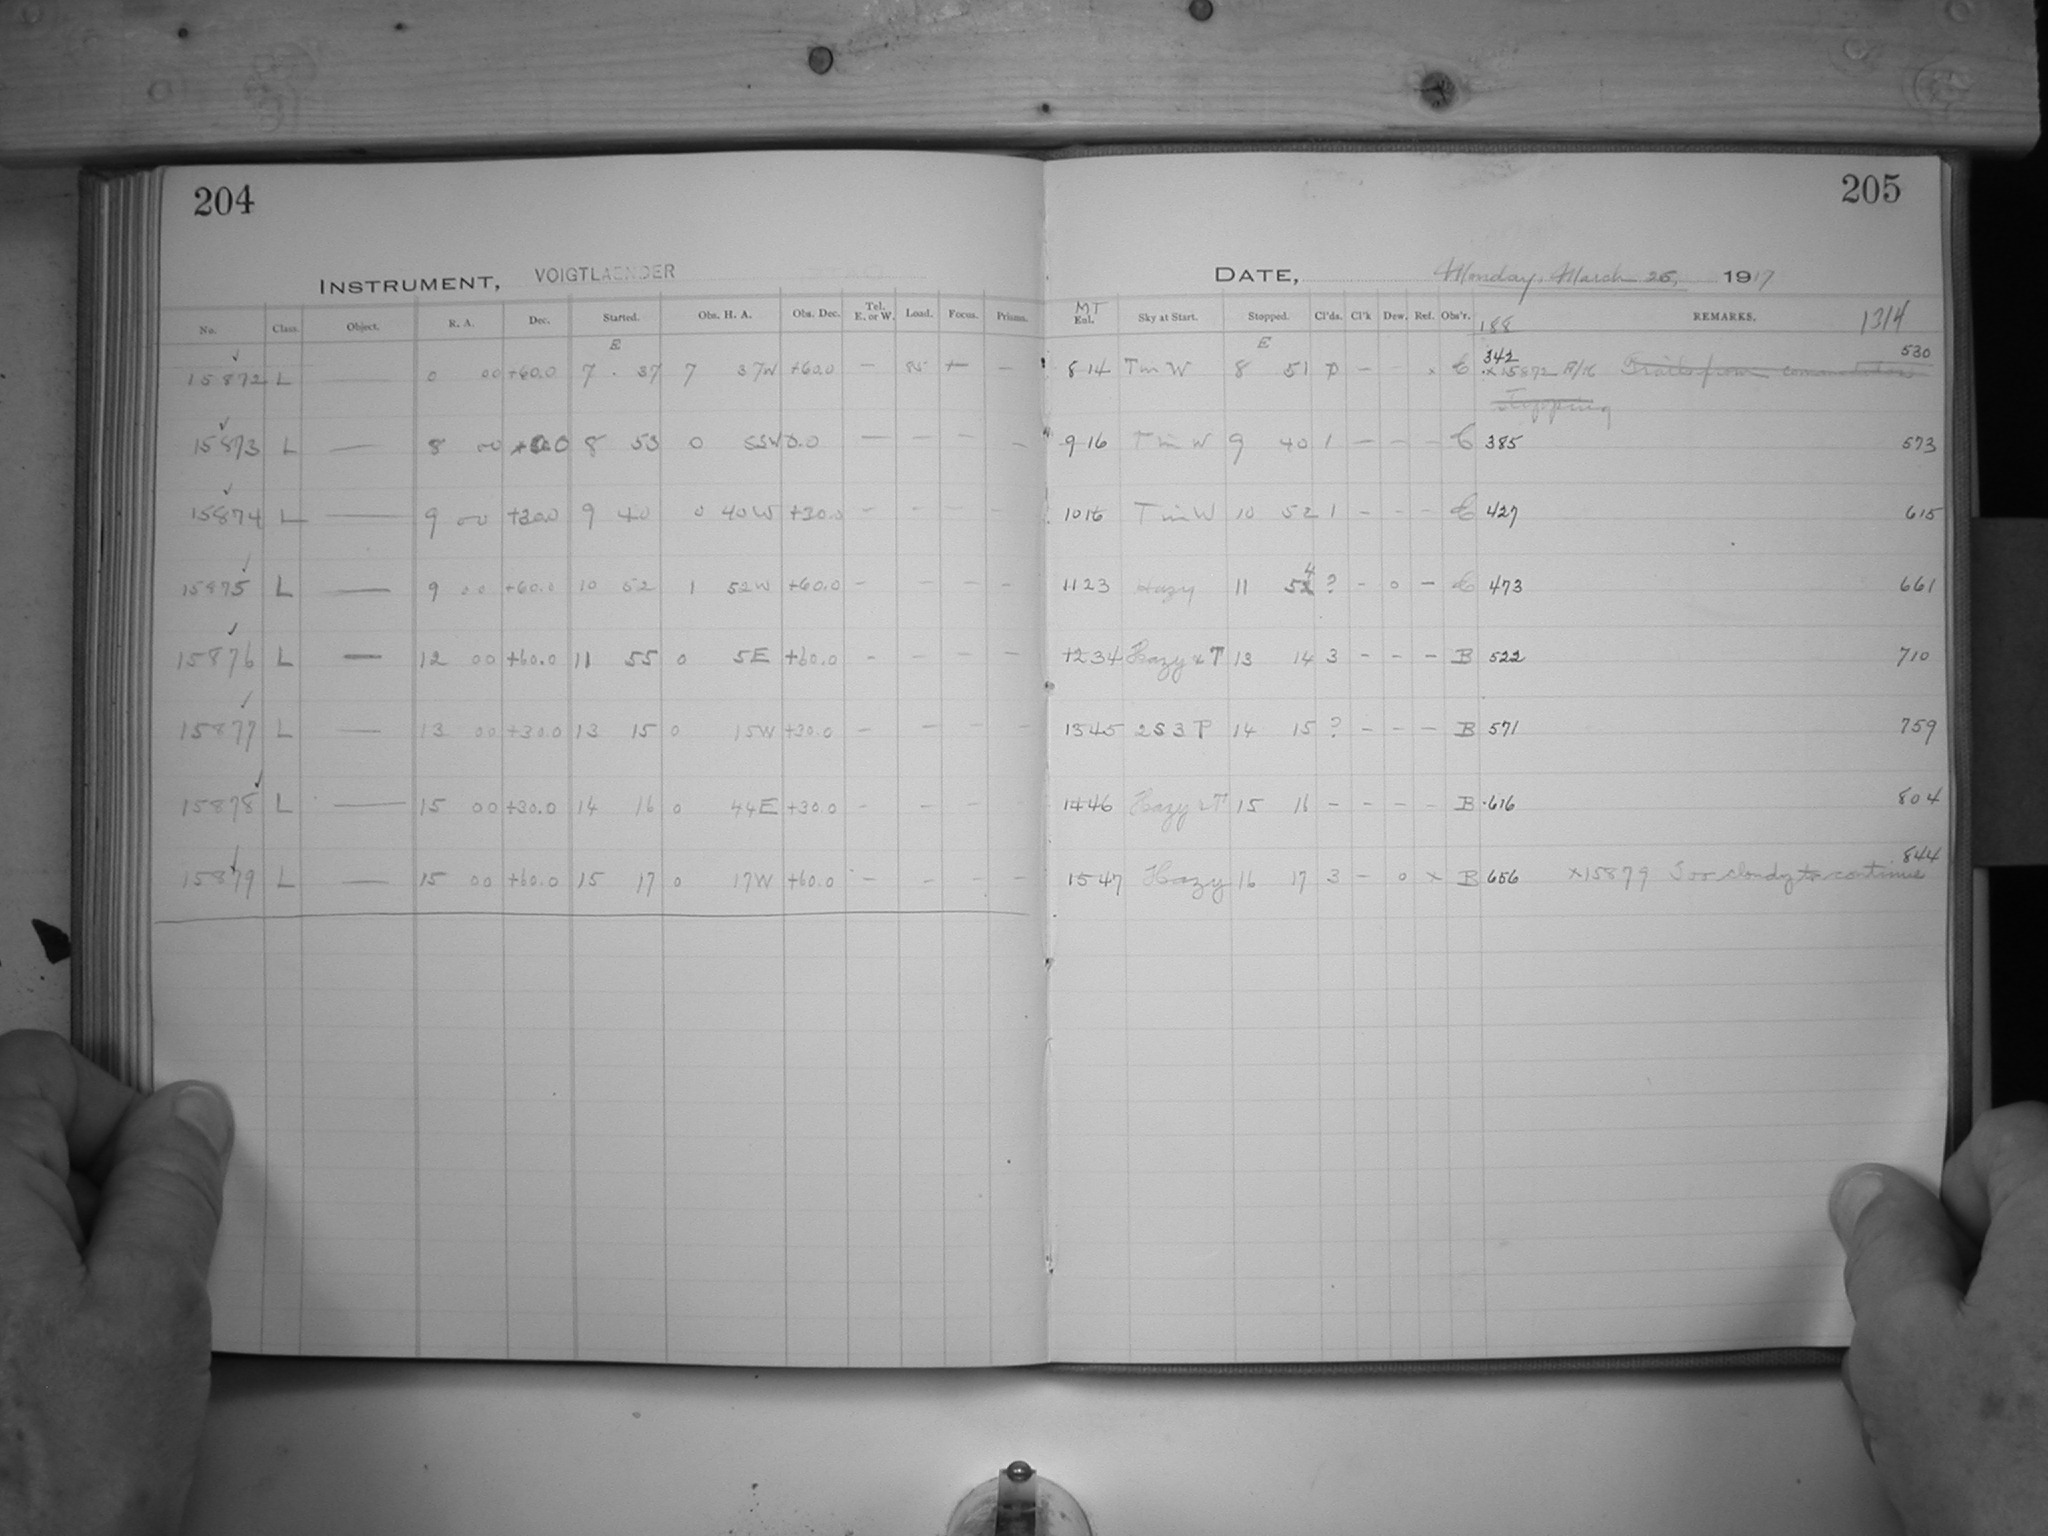 204
205
INSTRUMENT, VOIGTLAENDER
DATE, Monday, March 26, 1917
No. Class. Object. R. A. Dec. Started. Obs. H. A. Obs. Dec. Tel. E. or W. Load. Focus. Prisms.
MT Eql. Sky at Start. Stopped. Cl'ds. Cl'k Dew. Ref. Obs'r. REMARKS.
188 1314
E E
15872 L 0 00 +60.0 7 37 7 37W +60.0 — 85 + — 8 14 T in W 8 51 — - x E 342 x15872 Trails from 530
Tipping
15873 L — 8 00 8 53 0 53W 0.0 — — — — 9 16 T in W 9 40 1 — — — E 385 573
15874 L — 9 00 +30.0 9 40 0 40W +30.0 — - - - 10 16 T in W 10 52 1 - - - E 427 615
15875 L — 9 00 +60.0 10 52 1 52W +60.0 - - - - 11 23 Hazy 11 54 ? - 0 - E 473 661
15876 L — 12 00 +60.0 11 55 0 5E +60.0 - - - - 12 34 Hazy & T 13 14 3 - - - B 522 710
15877 L — 13 00 +30.0 13 15 0 15W +30.0 - - - - 13 45 2S3T 14 15 ? - - - B 571 759
15878 L — 15 00 +30.0 14 16 0 44E +30.0 - - - - 14 46 Hazy & T 15 16 - - - - B 616 804
15879 L — 15 00 +60.0 15 17 0 17W +60.0 - - - - 15 47 Hazy 16 17 3 - 0 x B 656 x15879 Too cloudy to continue 844